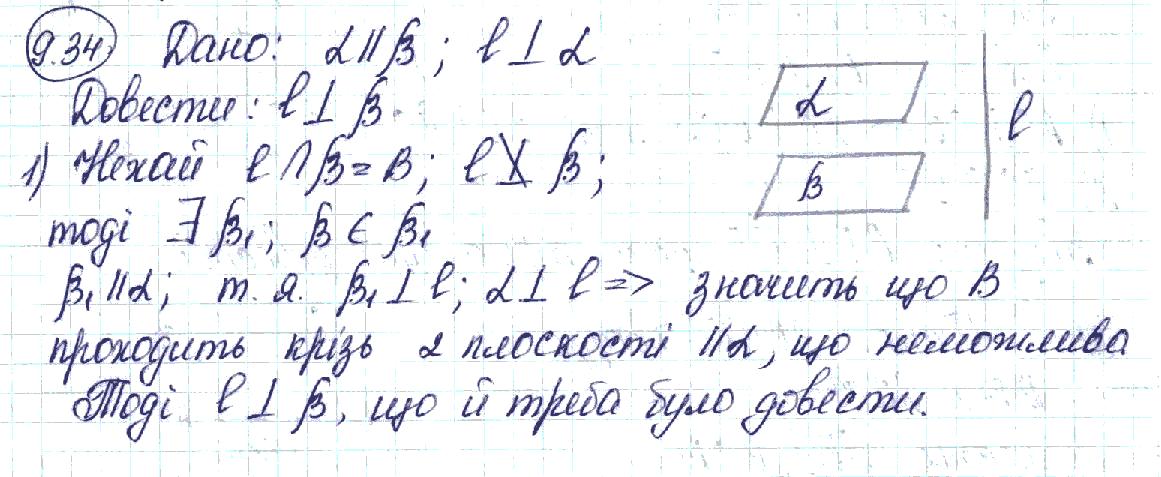 9.34 Дано: α∥β; l⊥α
Довести: l⊥β.
1) Нехай l∩β=B; l⊥̸β;
тоді ∃β₁; β∈β₁
β₁∥α; т.я. β₁⊥l; α⊥l => значить що B
проходить крізь 2 плоскості ∥α, що неможлива
Тоді l⊥β, що й треба було довести.
α
l
β